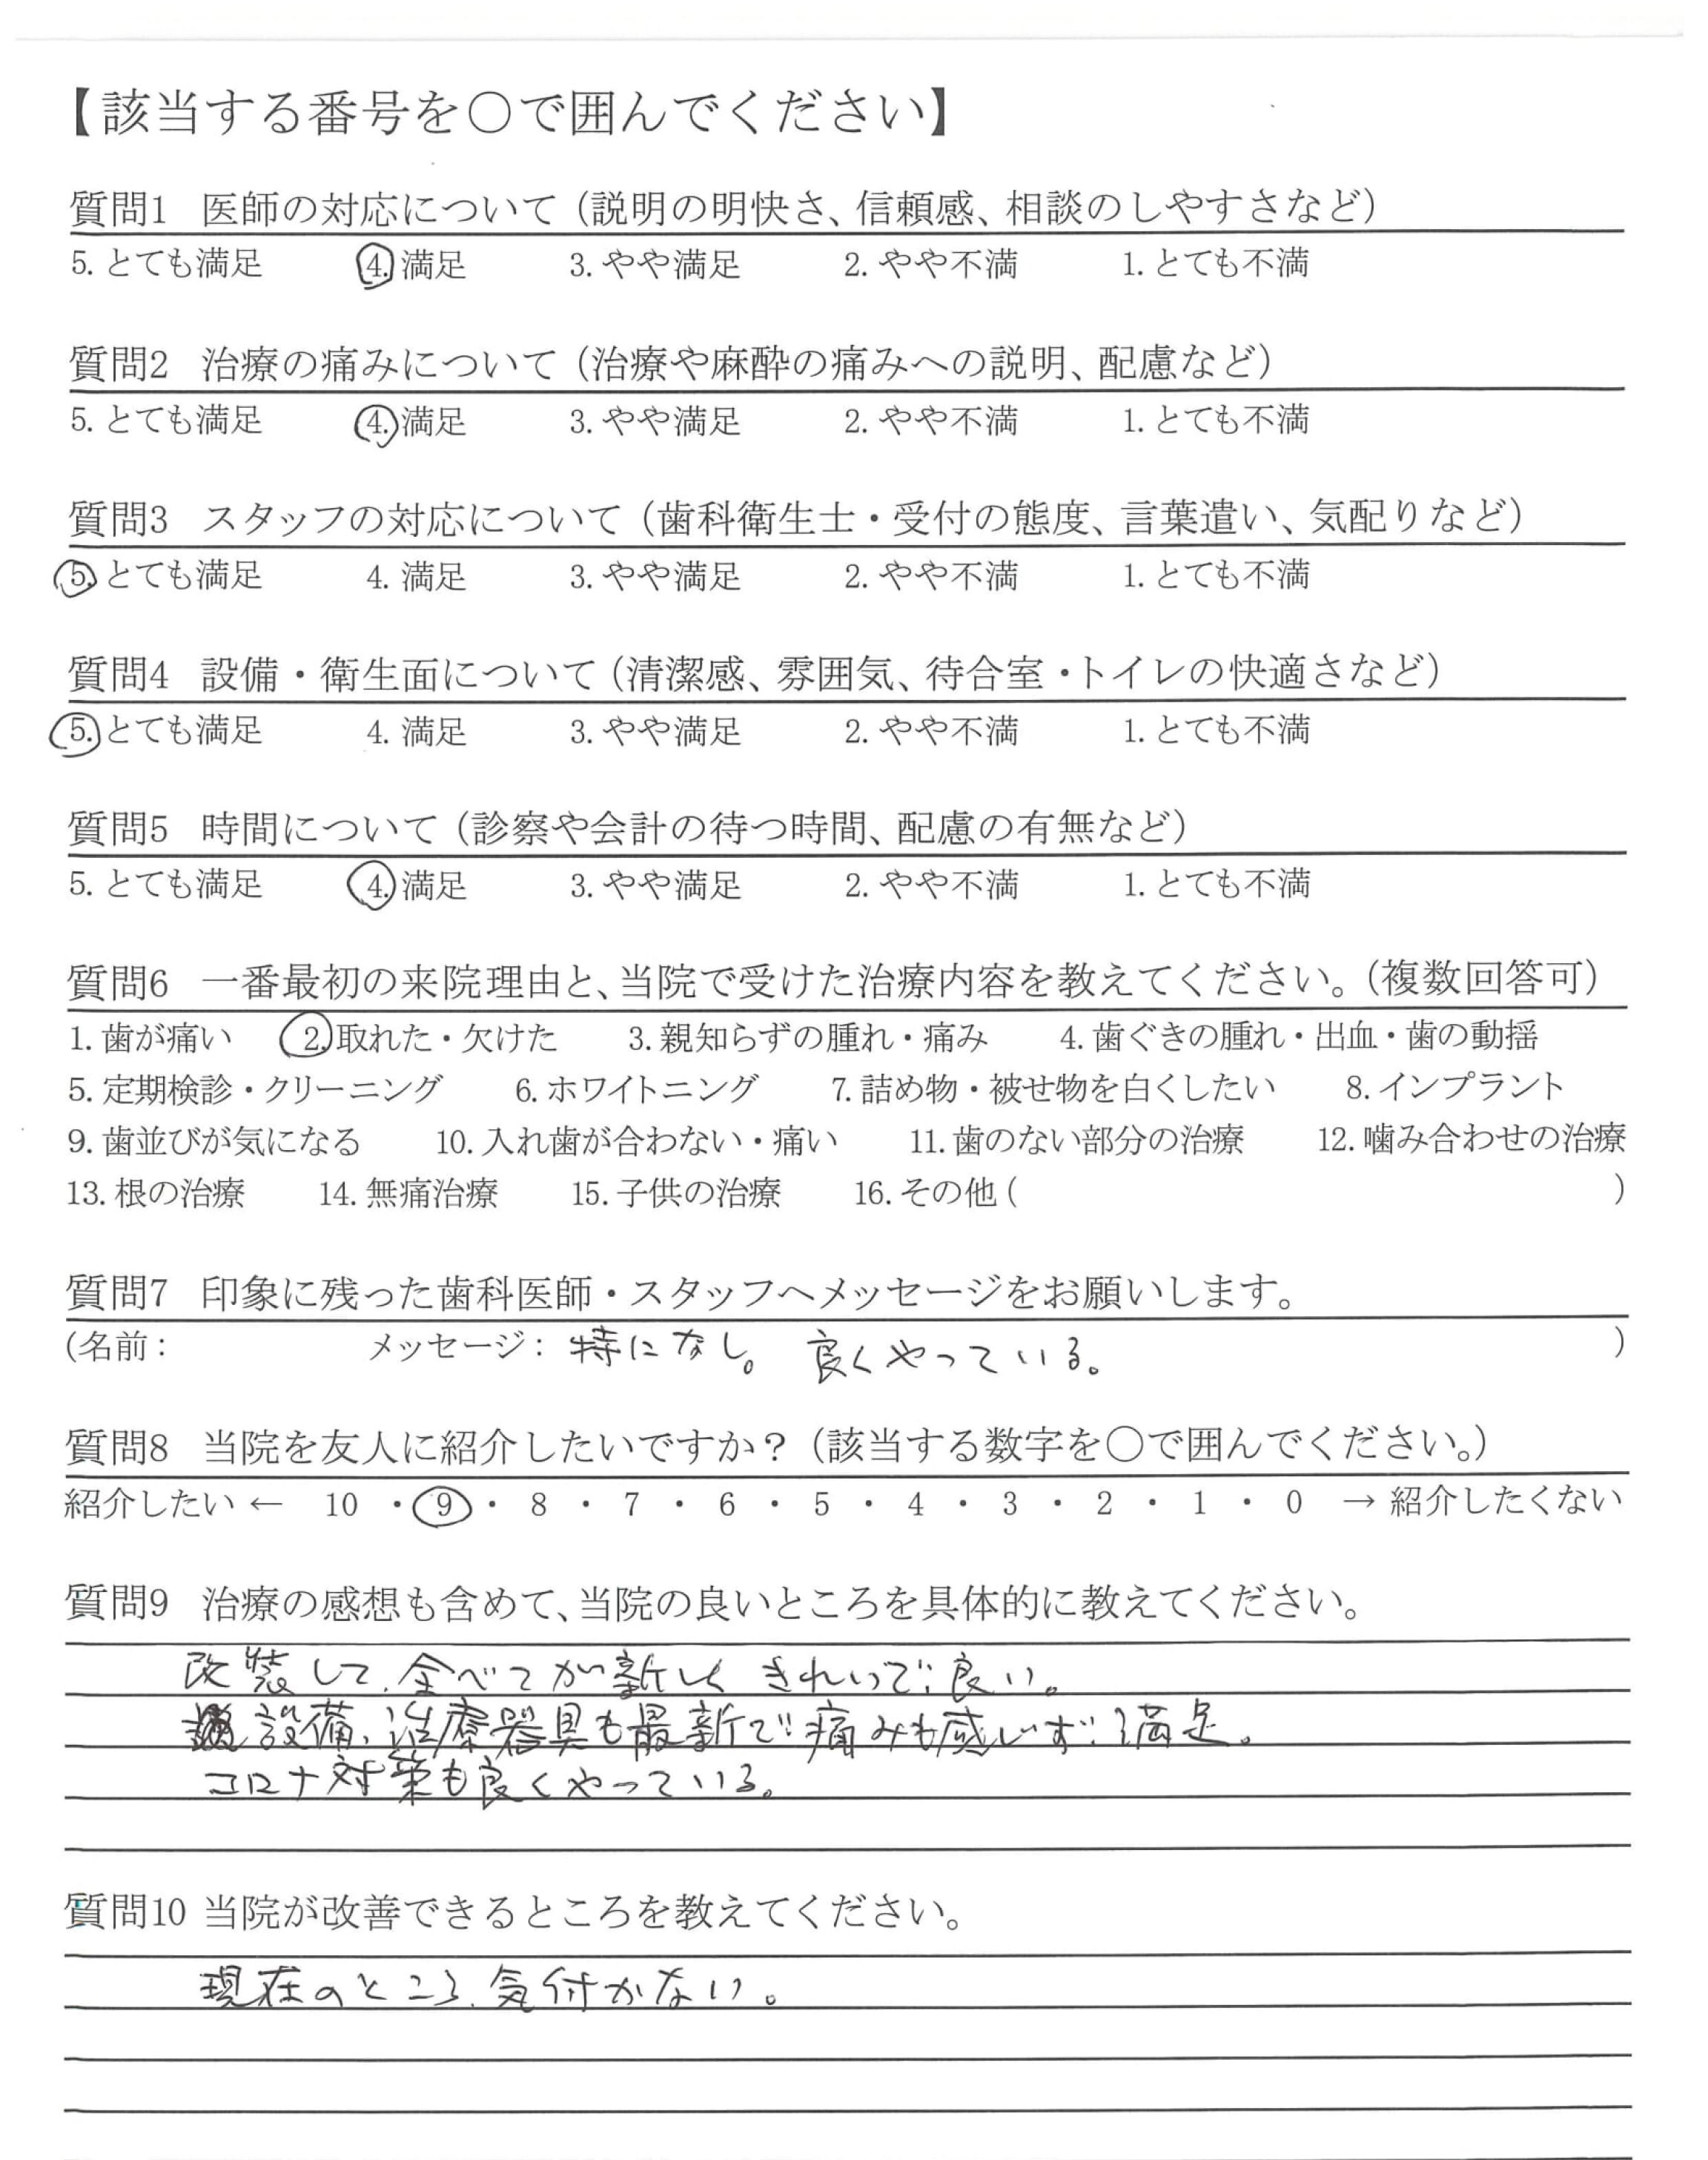 【該当する番号を○で囲んでください】
質問1 医師の対応について（説明の明快さ、信頼感、相談のしやすさなど）
5. とても満足 4. 満足 3. やや満足 2. やや不満 1. とても不満
質問2 治療の痛みについて（治療や麻酔の痛みへの説明、配慮など）
5. とても満足 4. 満足 3. やや満足 2. やや不満 1. とても不満
質問3 スタッフの対応について（歯科衛生士・受付の態度、言葉遣い、気配りなど）
5. とても満足 4. 満足 3. やや満足 2. やや不満 1. とても不満
質問4 設備・衛生面について（清潔感、雰囲気、待合室・トイレの快適さなど）
5. とても満足 4. 満足 3. やや満足 2. やや不満 1. とても不満
質問5 時間について（診察や会計の待つ時間、配慮の有無など）
5. とても満足 4. 満足 3. やや満足 2. やや不満 1. とても不満
質問6 一番最初の来院理由と、当院で受けた治療内容を教えてください。（複数回答可）
1. 歯が痛い 2. 取れた・欠けた 3. 親知らずの腫れ・痛み 4. 歯ぐきの腫れ・出血・歯の動揺
5. 定期検診・クリーニング 6. ホワイトニング 7. 詰め物・被せ物を白くしたい 8. インプラント
9. 歯並びが気になる 10. 入れ歯が合わない・痛い 11. 歯のない部分の治療 12. 噛み合わせの治療
13. 根の治療 14. 無痛治療 15. 子供の治療 16. その他（ ）
質問7 印象に残った歯科医師・スタッフへメッセージをお願いします。
（名前： メッセージ：特になし。 良くやっている。）
質問8 当院を友人に紹介したいですか？（該当する数字を○で囲んでください。）
紹介したい ← 10 ・ 9 ・ 8 ・ 7 ・ 6 ・ 5 ・ 4 ・ 3 ・ 2 ・ 1 ・ 0 → 紹介したくない
質問9 治療の感想も含めて、当院の良いところを具体的に教えてください。
改装して、全べてが新しく きれいで良い。
設備、治療器具も最新で痛みも感じず満足。
コロナ対策も良くやっている。
質問10 当院が改善できるところを教えてください。
現在のところ、気付かない。